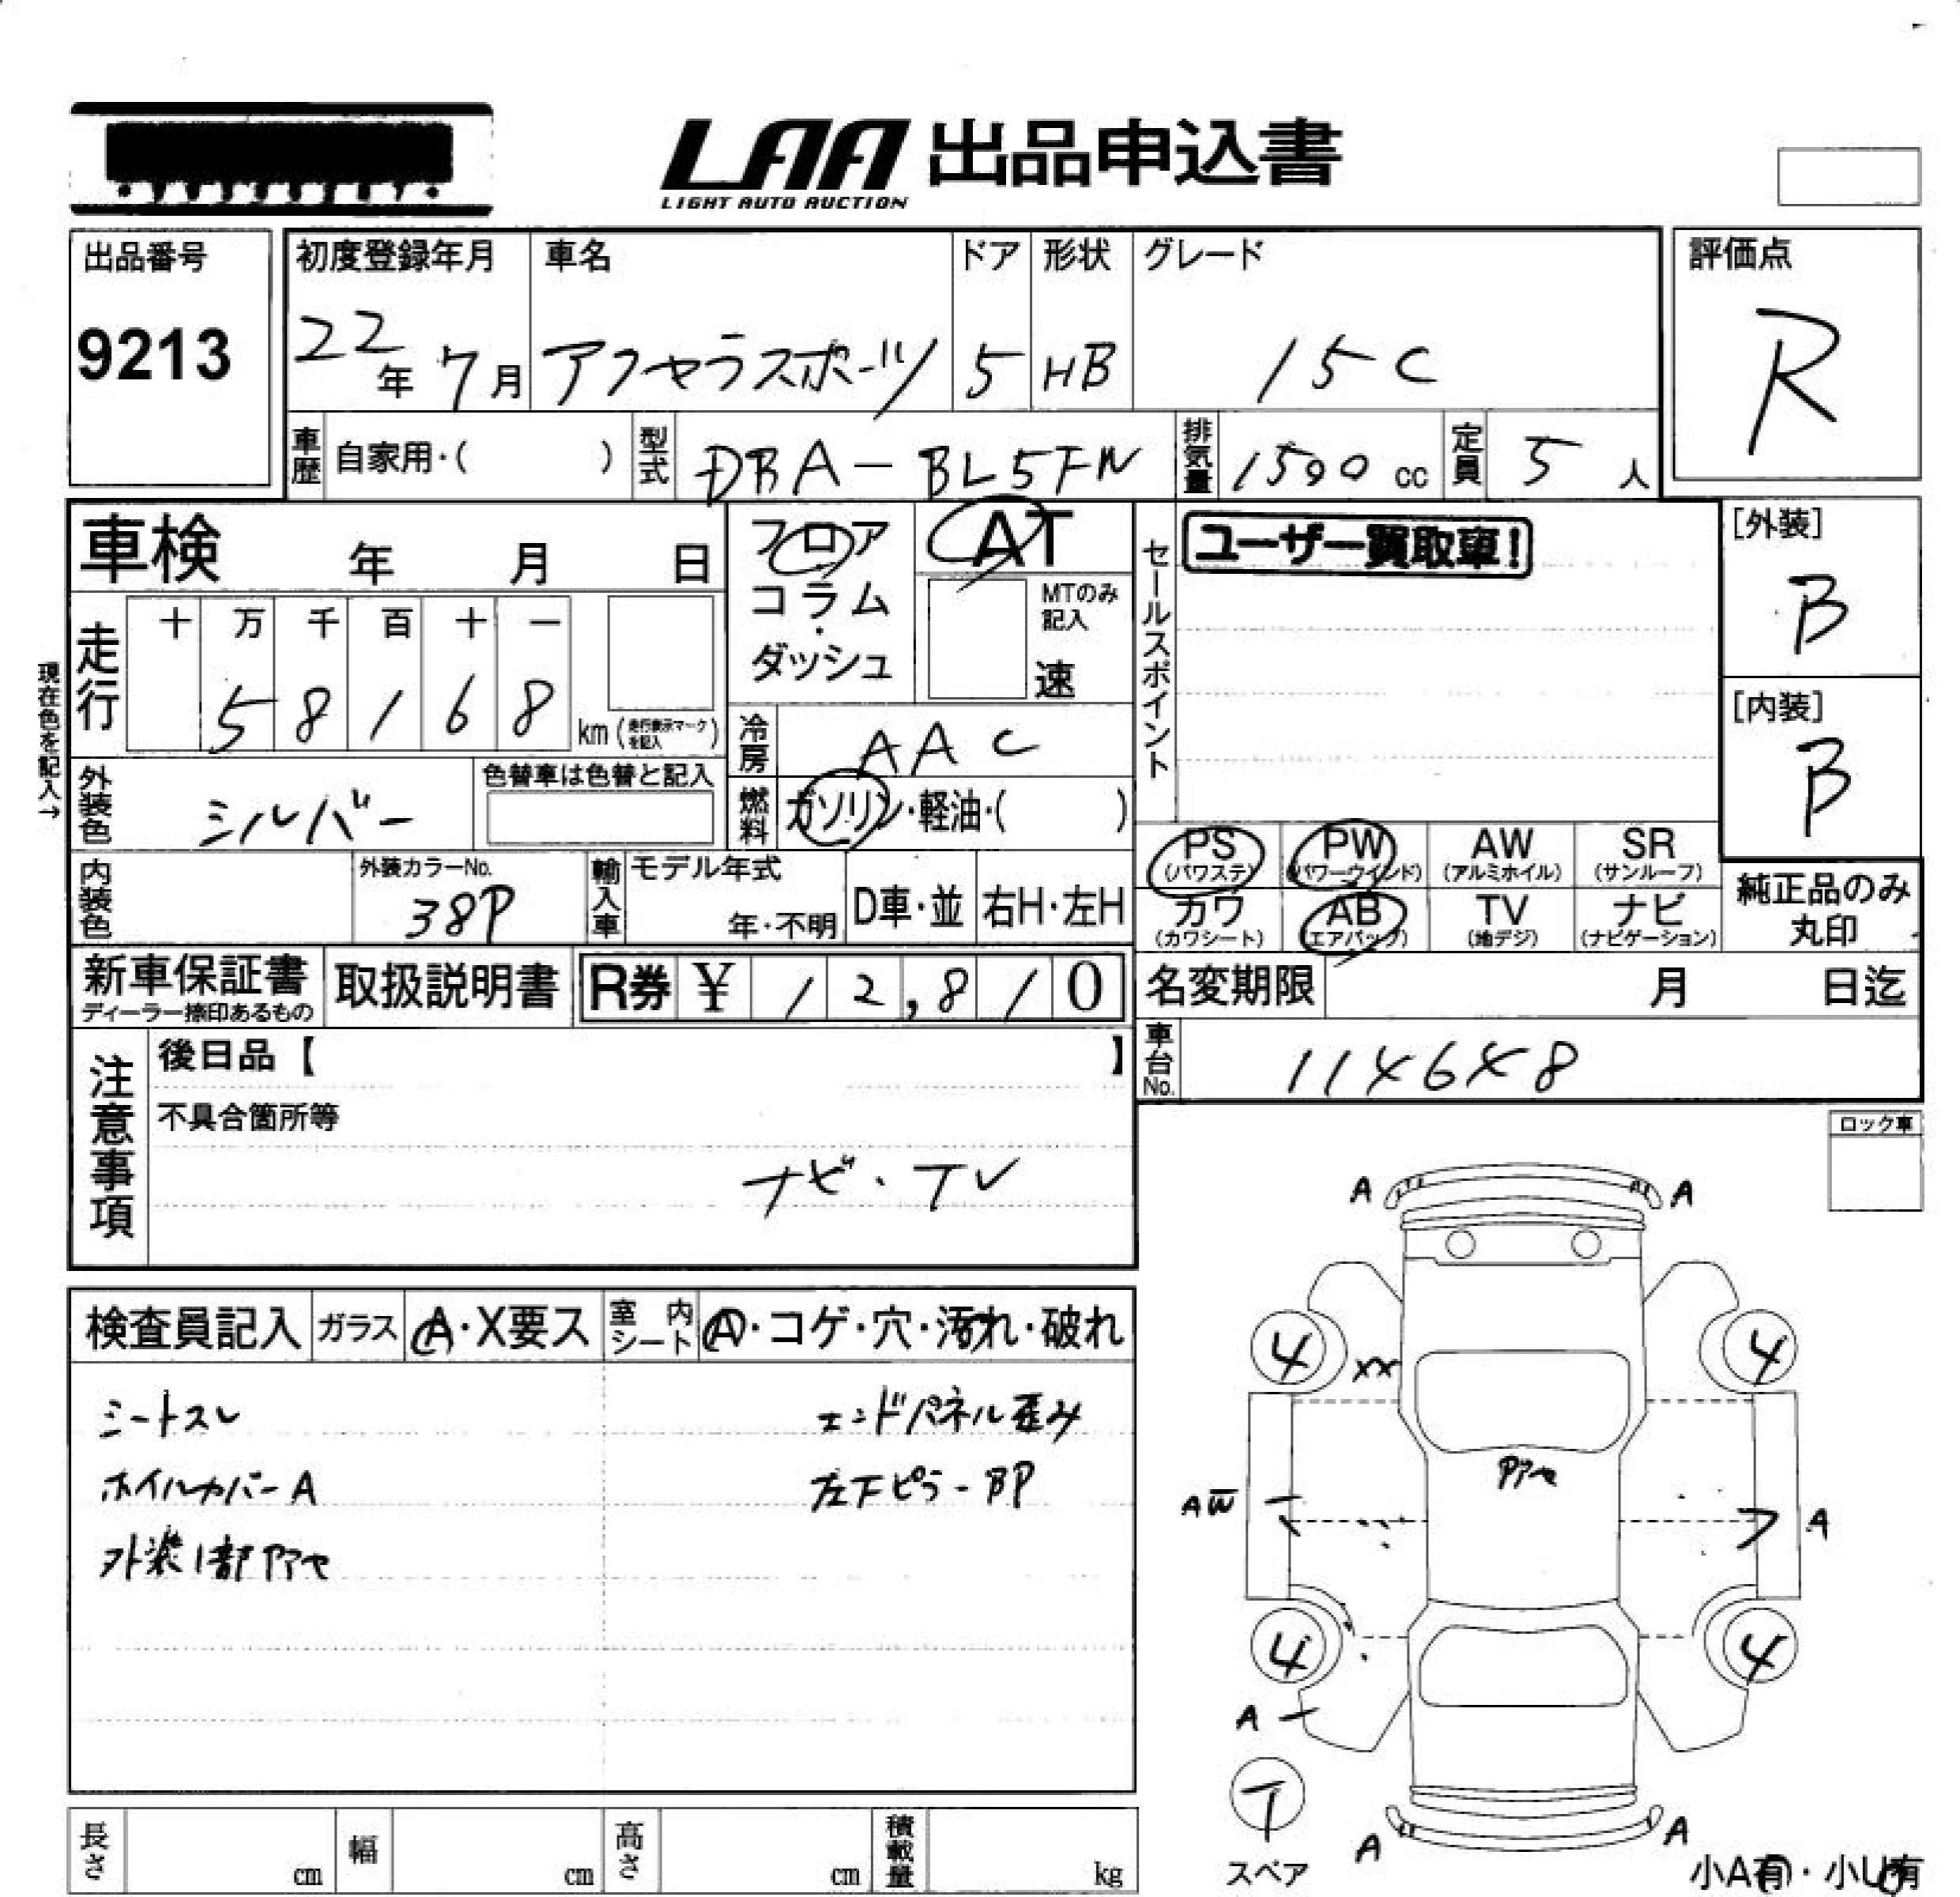 LAA 出品申込書
LIGHT AUTO AUCTION
出品番号
9213
初度登録年月
22年 7月
車名
アクセラスポーツ
ドア
5
形状
HB
グレード
15C
評価点
R
車歴 自家用・( )
型式 DBA-BL5FW
排気量 1500 cc
定員 5 人
車検 年 月 日
フロア
コラム
・
ダッシュ
AT
MTのみ
記入
速
セールスポイント
ユーザー買取車!
[外装]
B
[内装]
B
現在色を記入→
走行
十 万 千 百 十 一
5 8 1 6 8
km (走行表示マークを記入)
冷房 AAC
燃料 ガソリン・軽油・( )
外装色 シルバー
色替車は色替と記入
内装色
外装カラーNo.
38P
輸入車
モデル年式
年・不明
D車・並
右H・左H
PS
(パワステ)
PW
(パワーウインド)
AW
(アルミホイル)
SR
(サンルーフ)
カワ
(カワシート)
AB
(エアバック)
TV
(地デジ)
ナビ
(ナビゲーション)
純正品のみ
丸印
新車保証書
ディーラー捺印あるもの
取扱説明書
R券 ¥ 12,810
名変期限 月 日迄
車台No. 114648
注意事項
後日品【 】
不具合箇所等
ナビ・TV
ロック車
検査員記入
ガラス A・X要ス
室内シート A・コゲ・穴・汚れ・破れ
シートスレ
エンドパネル歪み
ホイルカバーA
左下ピラーBP
外装1部アセ
A A
4 4
XX
アセ
AW A
4 4
A
T
スペア
A A
小A有・小U有
長さ cm
幅 cm
高さ cm
積載量 kg